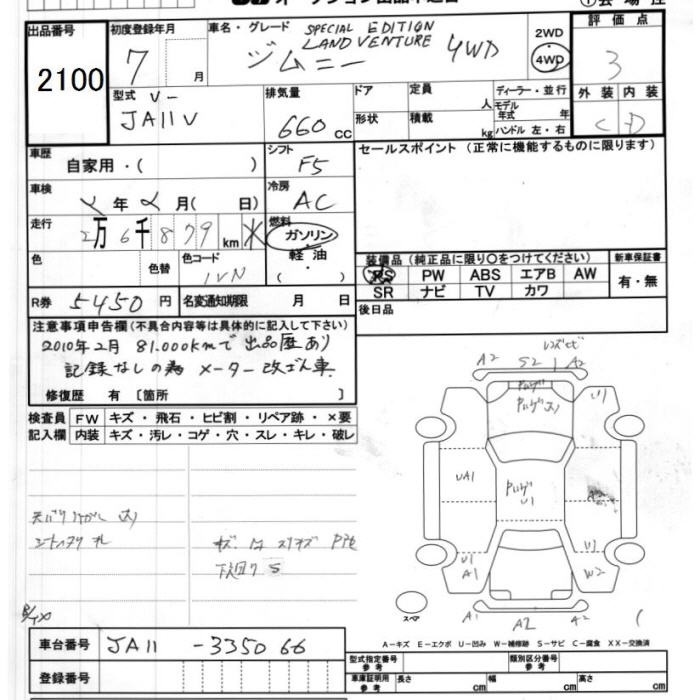 出品番号 2100
初度登録年月 7 月
車名・グレード SPECIAL EDITION
LAND VENTURE
ジムニー 4WD
2WD
4WD
評価点
3
外装 内装
C D
型式 V-
JA11V
排気量
660 cc
ドア
形状
定員 人
積載 kg
ディーラー・並行
モデル年式 年
ハンドル 左・右
車歴
自家用・( )
シフト
F5
セールスポイント (正常に機能するものに限ります)
車検
年 月( 日)
冷房
AC
走行
2万6千879 km
燃料
ガソリン
軽油
( )
色
色替
色コード
1VN
装備品 (純正品に限り○をつけてください)
PS PW ABS エアB AW
SR ナビ TV カワ
新車保証書
有・無
R券 5450円
名変通知期限 月 日
後日品
注意事項申告欄(不具合内容等は具体的に記入して下さい)
2010年2月 81.000kmで出品歴あり
記録なしの為 メーター改ざん車
修復歴 有 [箇所 ]
検査員 FW キズ・飛石・ヒビ割・リペア跡・×要
記入欄 内装 キズ・汚レ・コゲ・穴・スレ・キレ・破レ
A2 S2 A2
U1
UA1
U1
U1
A1
U1
W2
A1 A2 A2
スペア
下回りS
車台番号 JA11 -335066
登録番号
A－キズ E－エクボ U－凹み W－補修跡 S－サビ C－腐食 XX－交換済
型式指定番号 参考
類別区分番号 参考
車庫証明用 参考
長さ cm
幅 cm
高さ cm